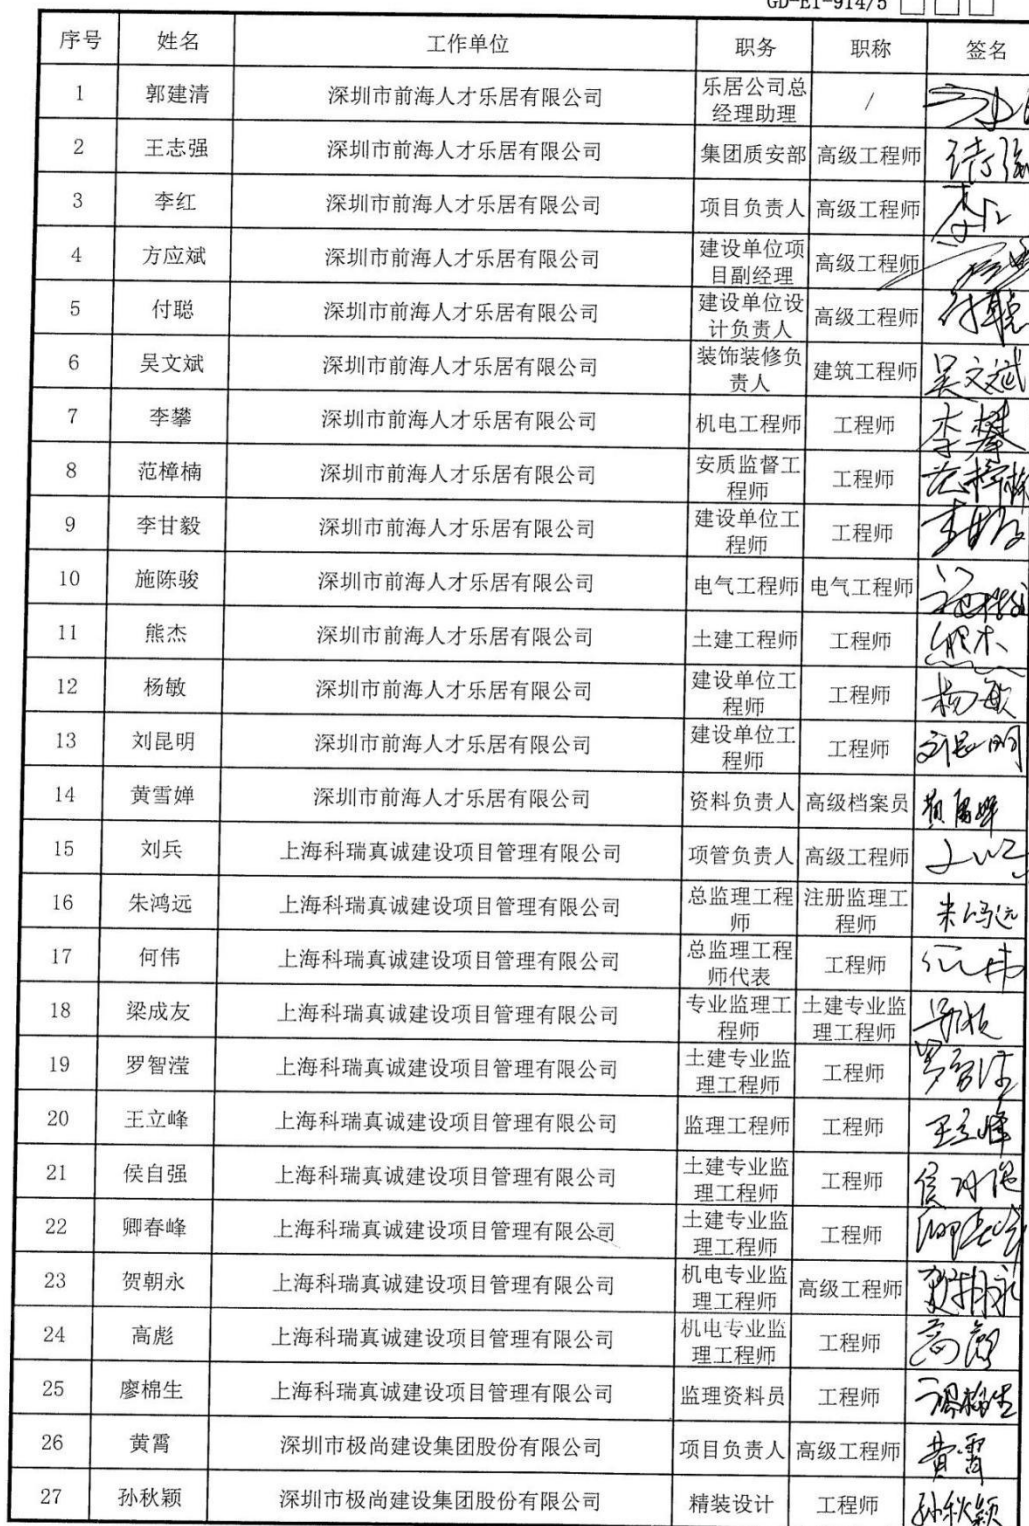 GD-E1-914/5
序号 姓名 工作单位 职务 职称 签名
1 郭建清 深圳市前海人才乐居有限公司 乐居公司总经理助理 /
2 王志强 深圳市前海人才乐居有限公司 集团质安部 高级工程师
3 李红 深圳市前海人才乐居有限公司 项目负责人 高级工程师 李红
4 方应斌 深圳市前海人才乐居有限公司 建设单位项目副经理 高级工程师
5 付聪 深圳市前海人才乐居有限公司 建设单位设计负责人 高级工程师 付聪
6 吴文斌 深圳市前海人才乐居有限公司 装饰装修负责人 建筑工程师 吴文斌
7 李攀 深圳市前海人才乐居有限公司 机电工程师 工程师 李攀
8 范樟楠 深圳市前海人才乐居有限公司 安质监督工程师 工程师 范樟楠
9 李甘毅 深圳市前海人才乐居有限公司 建设单位工程师 工程师 李甘毅
10 施陈骏 深圳市前海人才乐居有限公司 电气工程师 电气工程师
11 熊杰 深圳市前海人才乐居有限公司 土建工程师 工程师 熊杰
12 杨敏 深圳市前海人才乐居有限公司 建设单位工程师 工程师 杨敏
13 刘昆明 深圳市前海人才乐居有限公司 建设单位工程师 工程师 刘昆明
14 黄雪婵 深圳市前海人才乐居有限公司 资料负责人 高级档案员 黄雪婵
15 刘兵 上海科瑞真诚建设项目管理有限公司 项管负责人 高级工程师
16 朱鸿远 上海科瑞真诚建设项目管理有限公司 总监理工程师 注册监理工程师 朱鸿远
17 何伟 上海科瑞真诚建设项目管理有限公司 总监理工程师代表 工程师 何伟
18 梁成友 上海科瑞真诚建设项目管理有限公司 专业监理工程师 土建专业监理工程师
19 罗智滢 上海科瑞真诚建设项目管理有限公司 土建专业监理工程师 工程师 罗智滢
20 王立峰 上海科瑞真诚建设项目管理有限公司 监理工程师 工程师 王立峰
21 侯自强 上海科瑞真诚建设项目管理有限公司 土建专业监理工程师 工程师 侯自强
22 卿春峰 上海科瑞真诚建设项目管理有限公司 土建专业监理工程师 工程师 卿春峰
23 贺朝永 上海科瑞真诚建设项目管理有限公司 机电专业监理工程师 高级工程师 贺朝永
24 高彪 上海科瑞真诚建设项目管理有限公司 机电专业监理工程师 工程师 高彪
25 廖棉生 上海科瑞真诚建设项目管理有限公司 监理资料员 工程师 廖棉生
26 黄霄 深圳市极尚建设集团股份有限公司 项目负责人 高级工程师 黄霄
27 孙秋颖 深圳市极尚建设集团股份有限公司 精装设计 工程师 孙秋颖